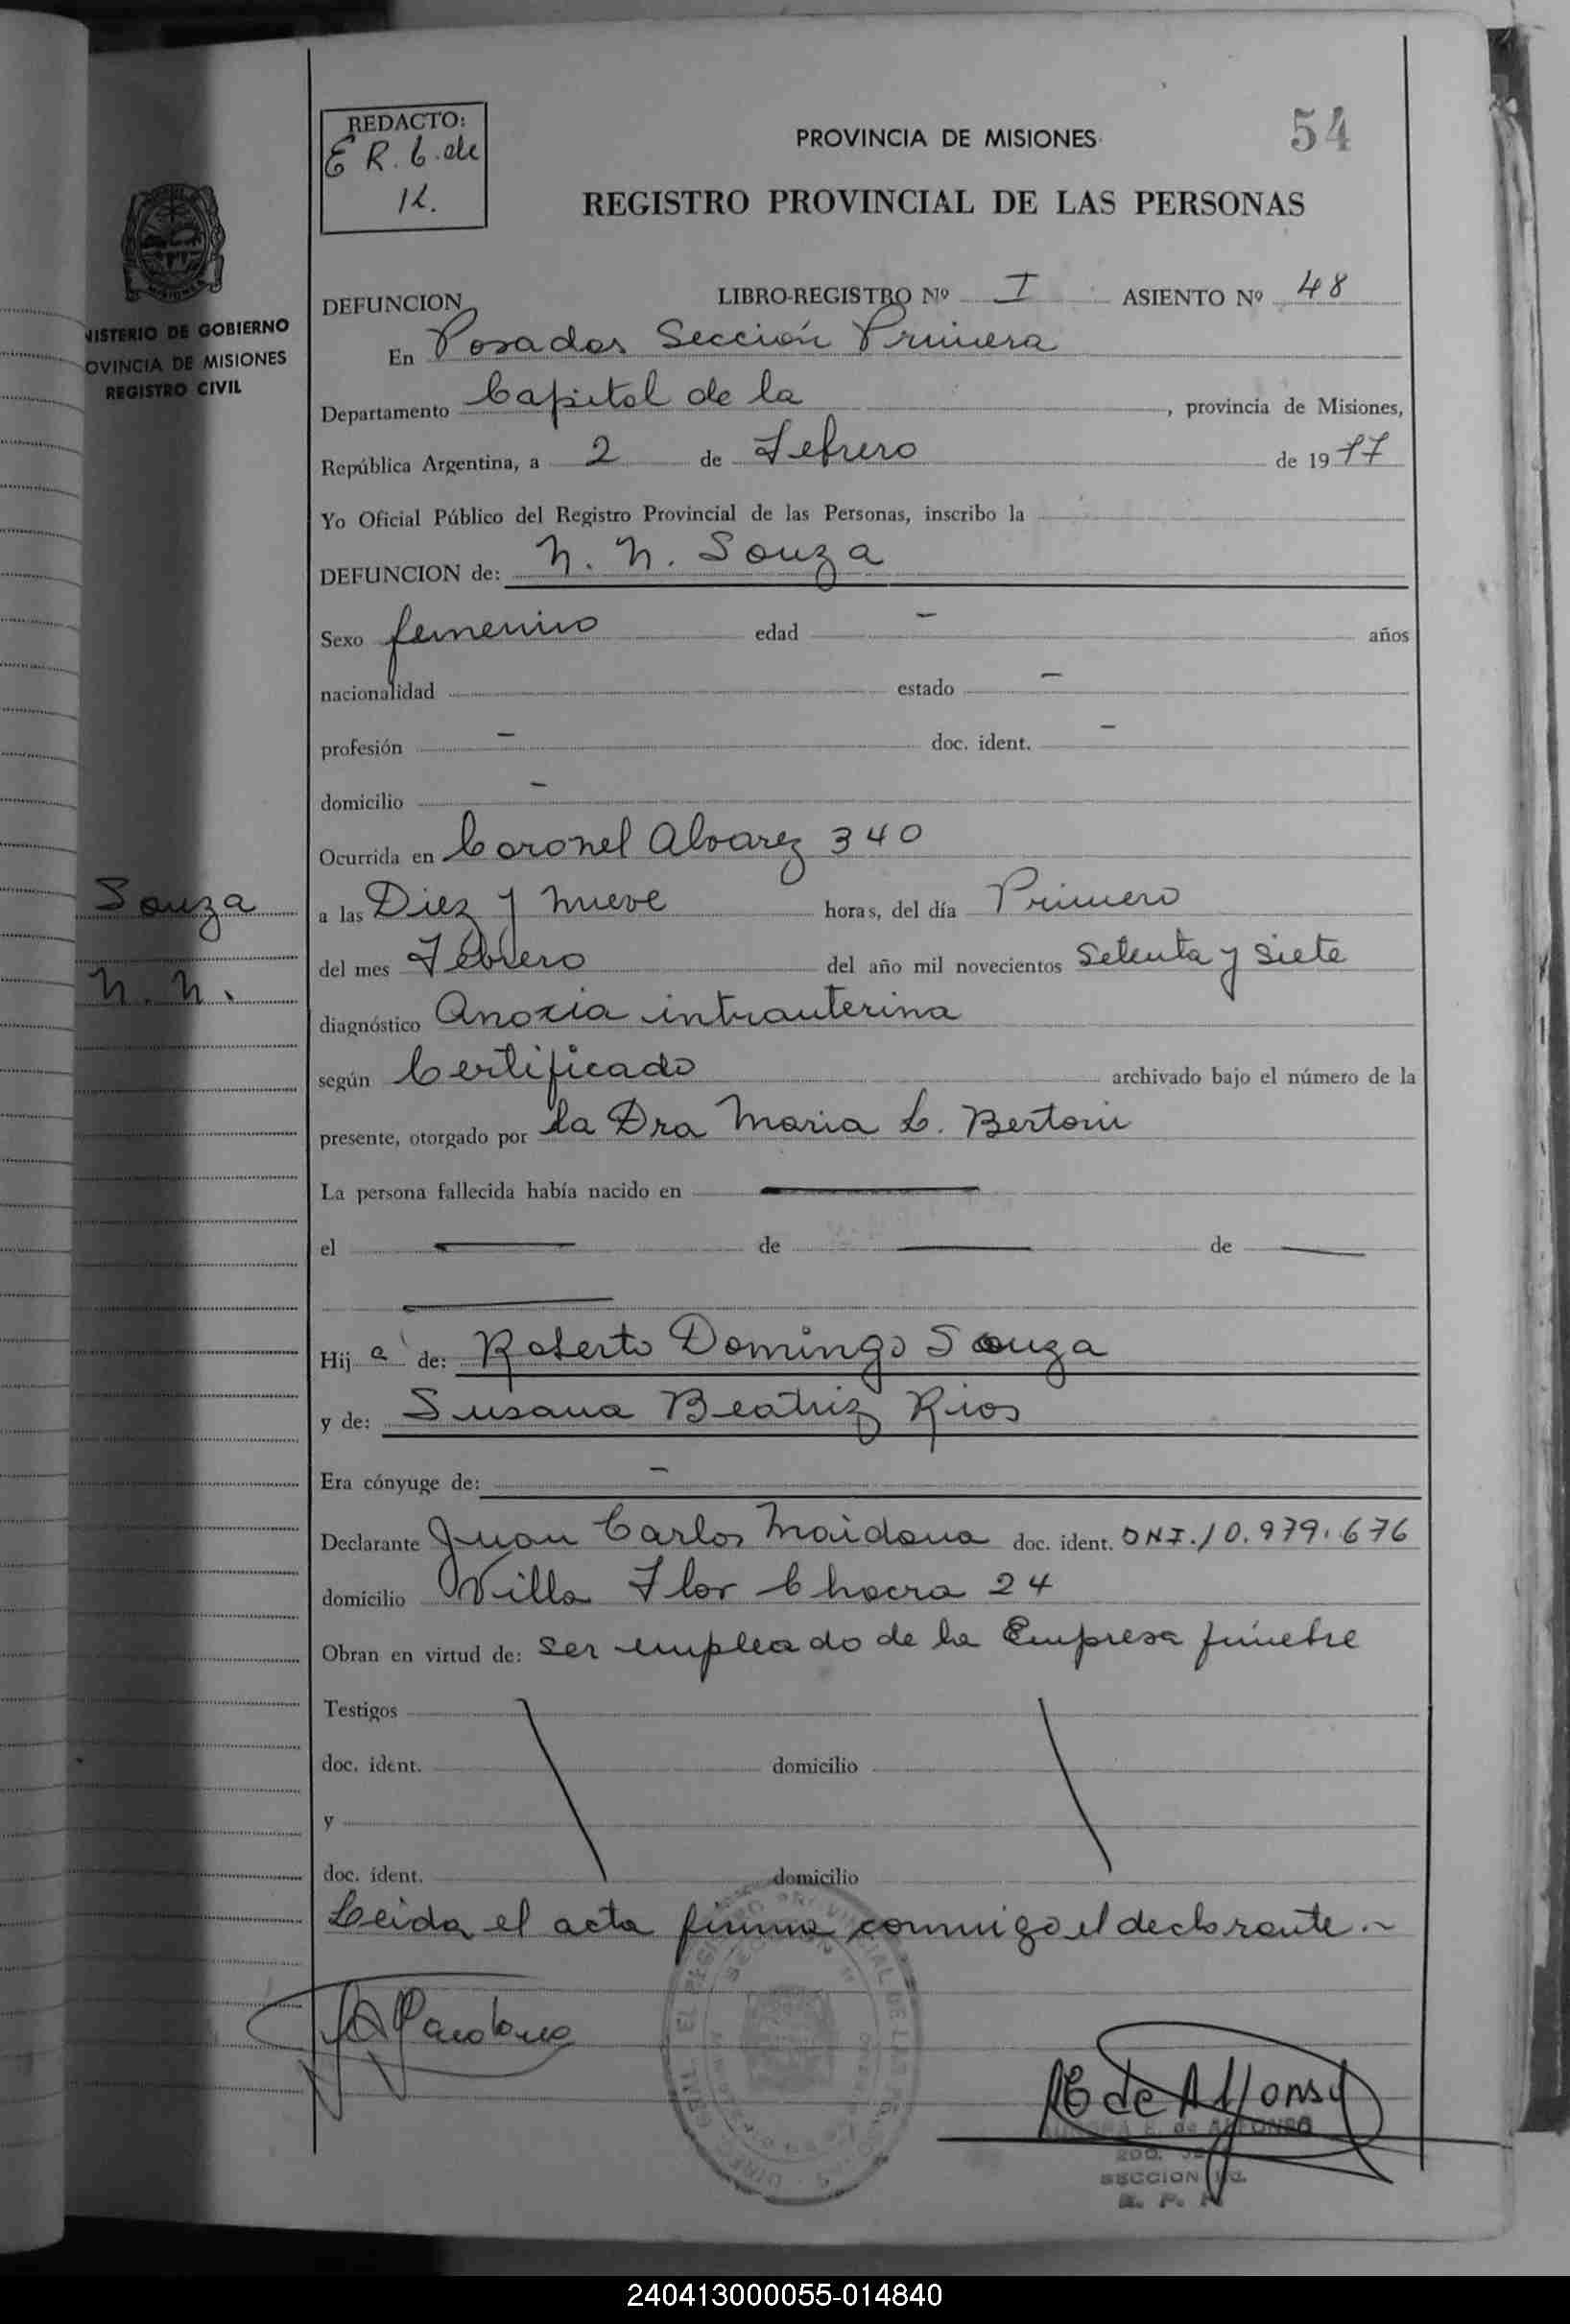 REDACTO:
E R. b. de
K.
PROVINCIA DE MISIONES
54
REGISTRO PROVINCIAL DE LAS PERSONAS
NISTERIO DE GOBIERNO
OVINCIA DE MISIONES
REGISTRO CIVIL
DEFUNCION LIBRO-REGISTRO Nº I ASIENTO Nº 48
En Posadas Sección Primera
Departamento Capital de la , provincia de Misiones,
República Argentina, a 2 de Febrero de 1977
Yo Oficial Público del Registro Provincial de las Personas, inscribo la
DEFUNCION de: N. N. Souza
Sexo femenino edad - años
nacionalidad estado -
profesión - doc. ident. -
domicilio -
Ocurrida en Coronel Alvarez 340
Souza
N. N.
a las Diez y nueve horas, del día Primero
del mes Febrero del año mil novecientos Setenta y siete
diagnóstico Anoxia intrauterina
según Certificado archivado bajo el número de la
presente, otorgado por la Dra Maria L. Bertoni
La persona fallecida había nacido en
el de de
Hij a de: Roberto Domingo Souza
y de: Susana Beatriz Rios
Era cónyuge de: -
Declarante Juan Carlos Maidana doc. ident. DNI. 10.979.676
domicilio Villa Flor Chacra 24
Obran en virtud de: ser empleado de la Empresa fúnebre
Testigos
doc. ident. domicilio
y
doc. ident. domicilio
Leida el acta firma conmigo el declarante.
E. de ALFONSO
SECCION
240413000055-014840